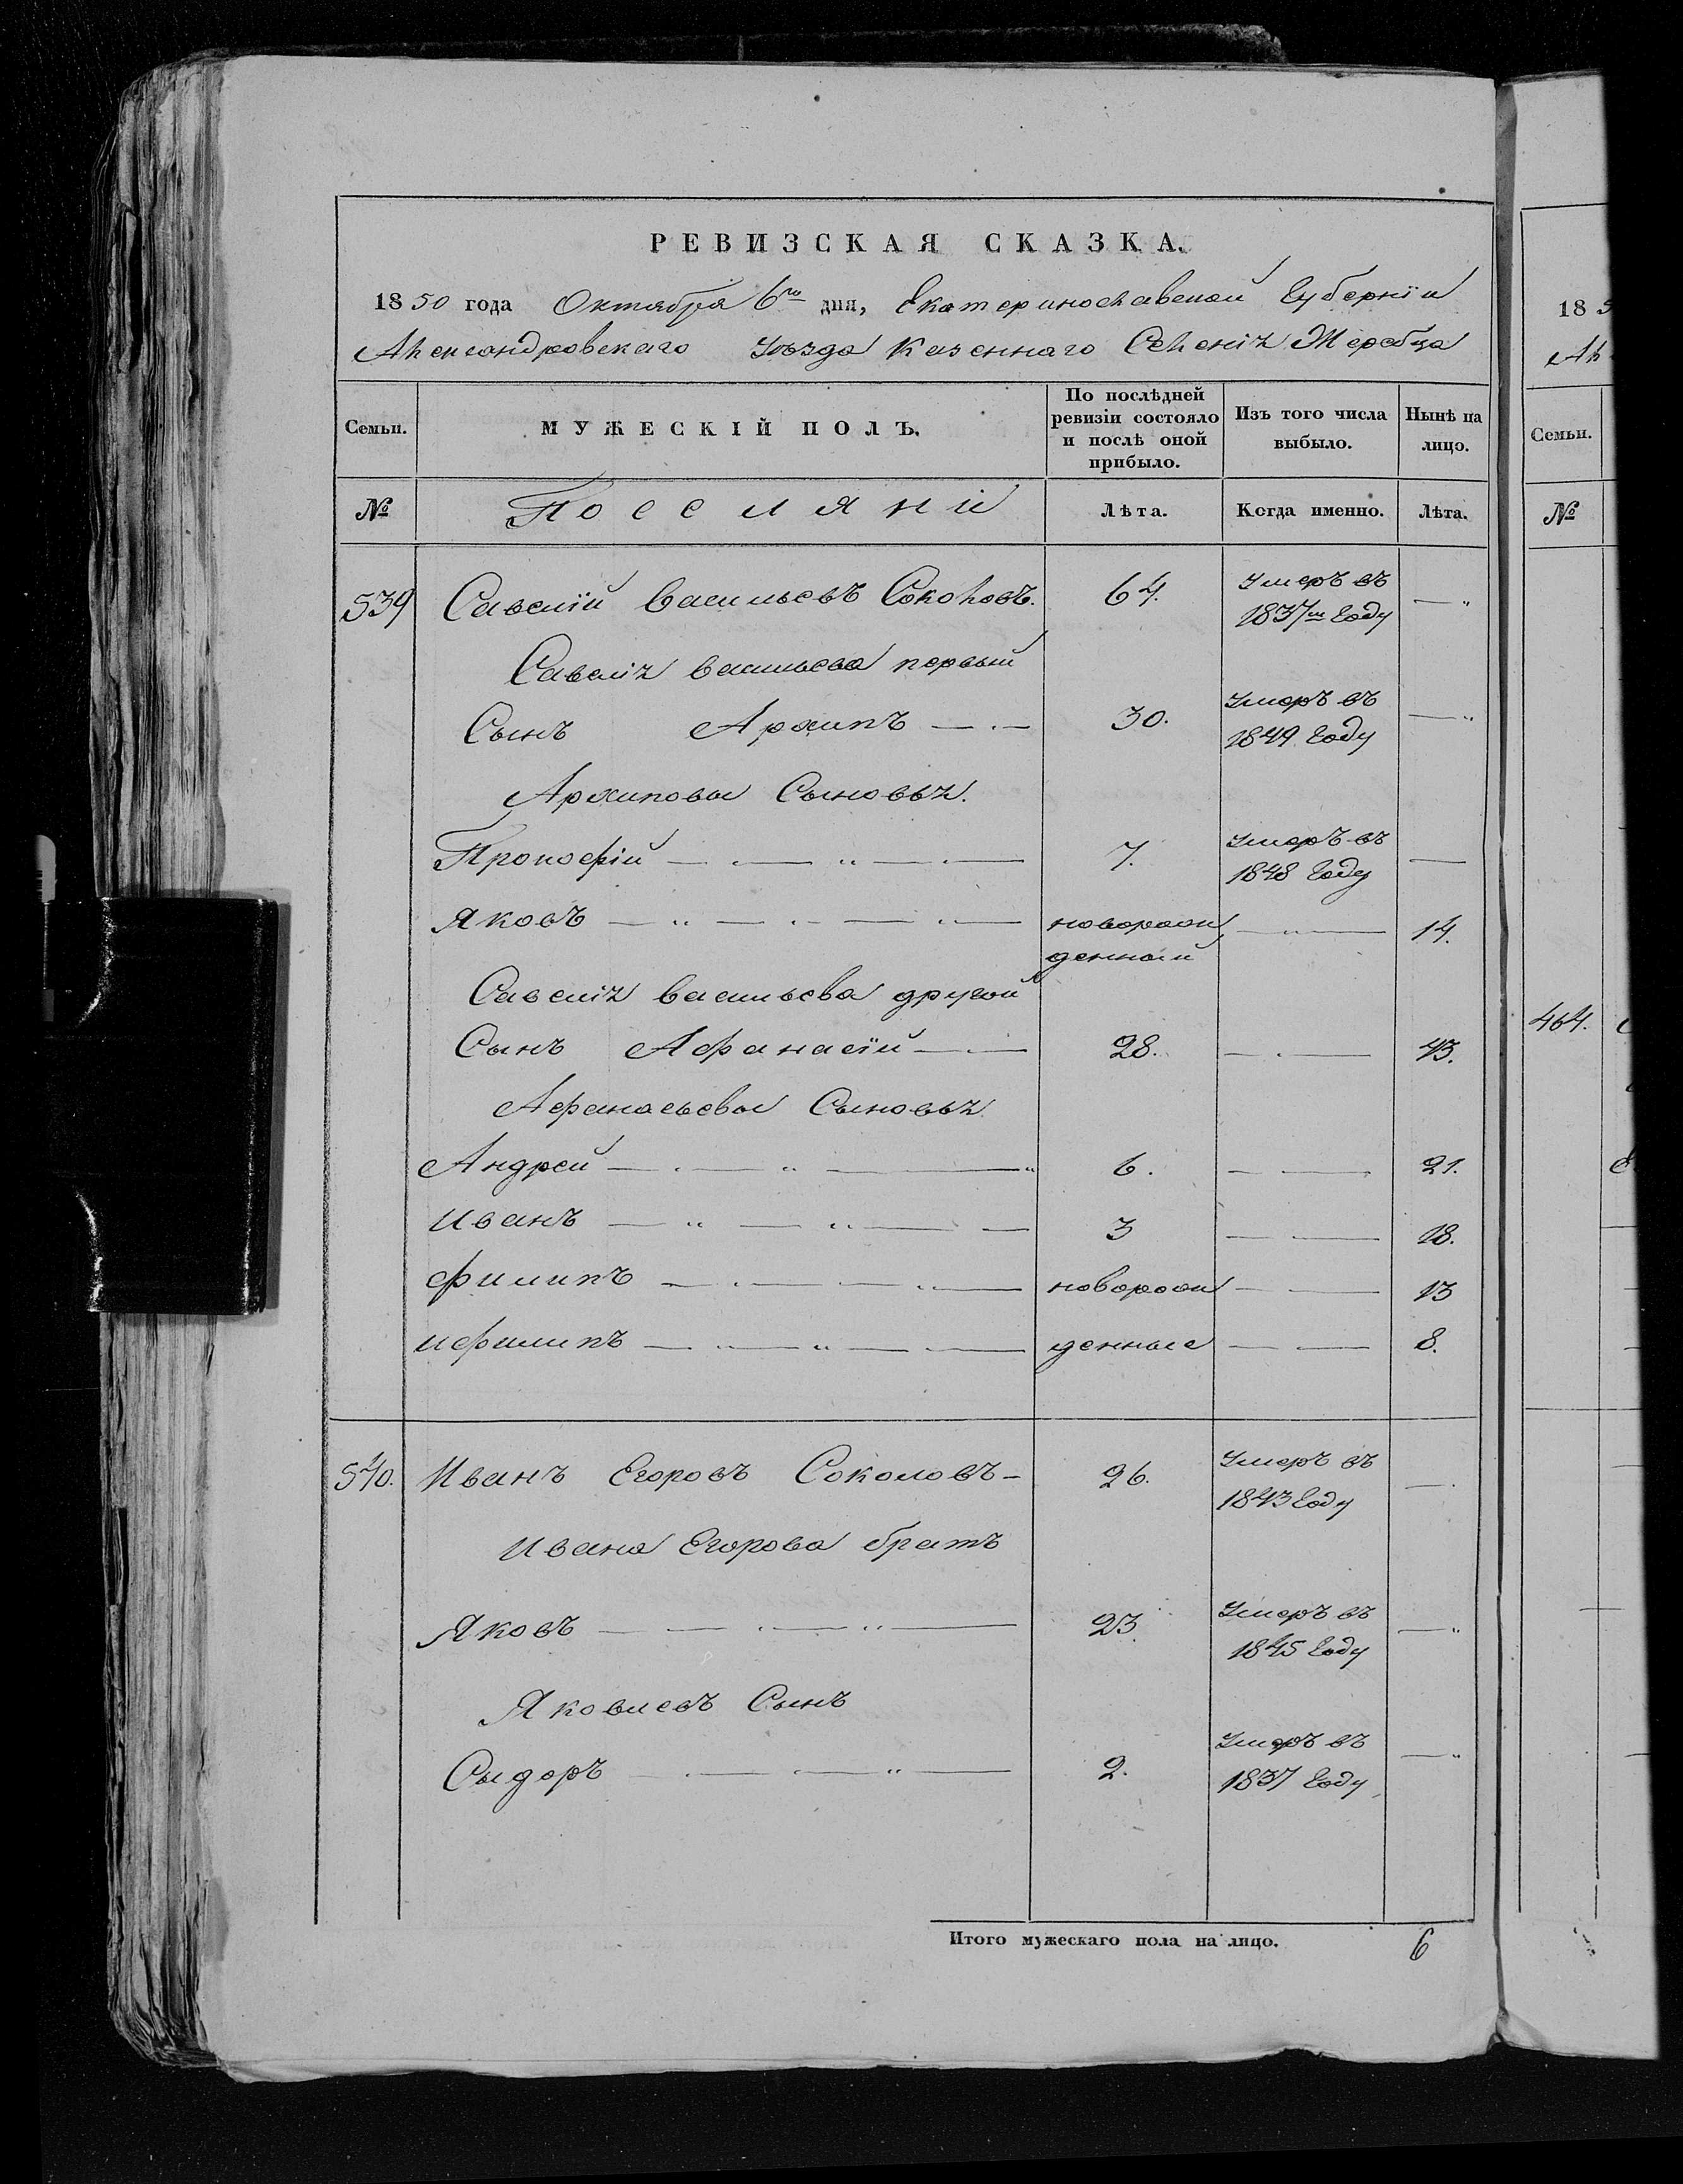 РЕВИЗСКАЯ СКАЗКА.
1850 года Октября 6го дня, Екатеринославской Губернiи
Александровскаго Уѣзда Казеннаго Селенiя Жеребца
Семьи. МУЖЕСКІЙ ПОЛЪ. По послѣдней ревизіи состояло и послѣ оной прибыло. Изъ того числа выбыло. Нынѣ на лицо.
№ Поселяни Лѣта. Когда именно. Лѣта.
539 Савелiй Васильевъ Соколовъ. 64. Умеръ въ 1837м Году
Савелiя Васильева первый
Сынъ Архипъ 30. Умеръ въ 1849 Году
Архиповы Сыновья.
Прокофiй 7. Умеръ въ 1848 Году
Яковъ новорожденный 14.
Савелiя Васильева другой
Сынъ Афанасiй 28. 43.
Афанасьевы Сыновья
Андрей 6. 21.
Иванъ 3 18.
Филипъ новорож 13
и Филипъ денные 8.
540. Иванъ Егоровъ Соколовъ 26. Умеръ въ 1843 Году
Ивана Егорова братъ
Яковъ 23. Умеръ въ 1845 Году
Яковлевъ Сынъ
Сыдоръ 2. Умеръ въ 1837 Году
Итого мужескаго пола на лицо. 6
18 5
Ал
Семьи.
№
464.